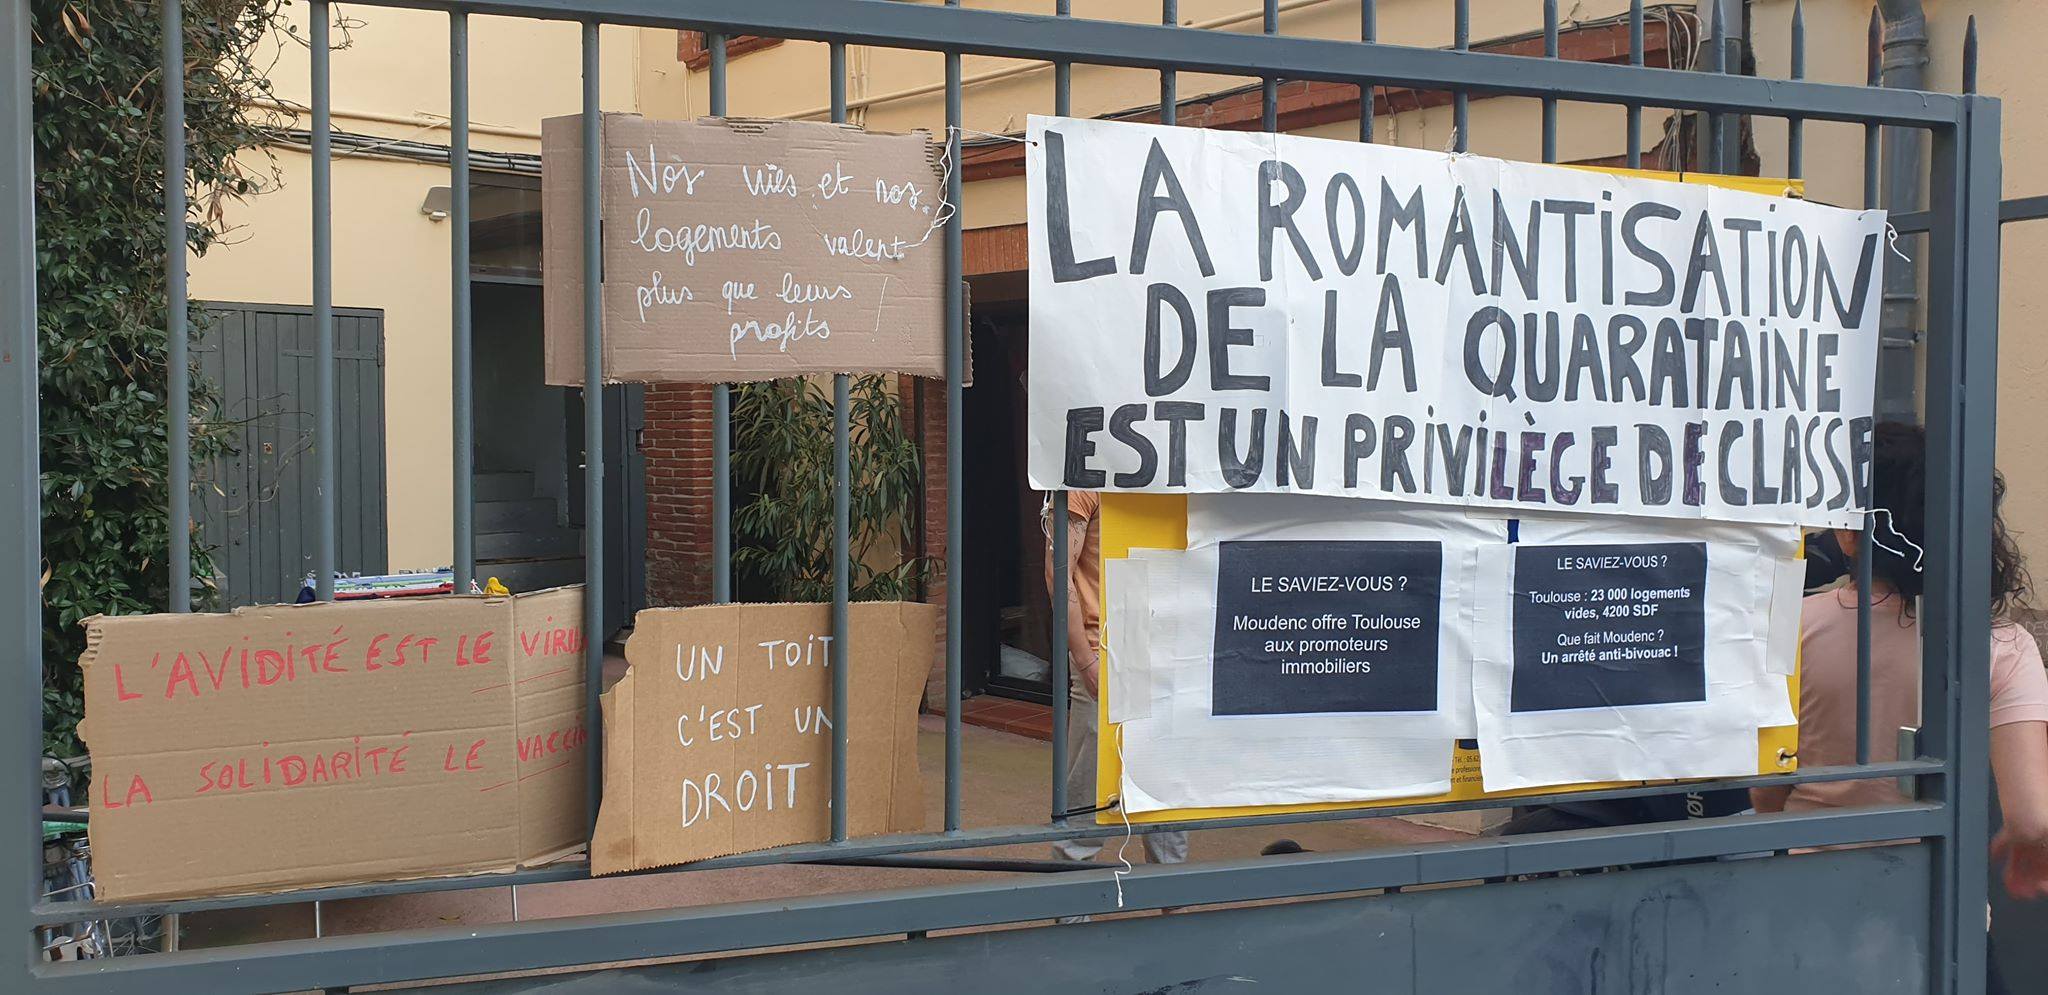 Nos vies et nos
logements valent
plus que leurs
profits !
LA ROMANTISATION
DE LA QUARATAINE
EST UN PRIVILÈGE DE CLASSE
L'AVIDITÉ EST LE VIRUS
LA SOLIDARITÉ LE VACCIN
UN TOIT
C'EST UN
DROIT.
LE SAVIEZ-VOUS ?
Moudenc offre Toulouse
aux promoteurs
immobiliers
LE SAVIEZ-VOUS ?
Toulouse : 23 000 logements
vides, 4200 SDF
Que fait Moudenc ?
Un arrêté anti-bivouac !